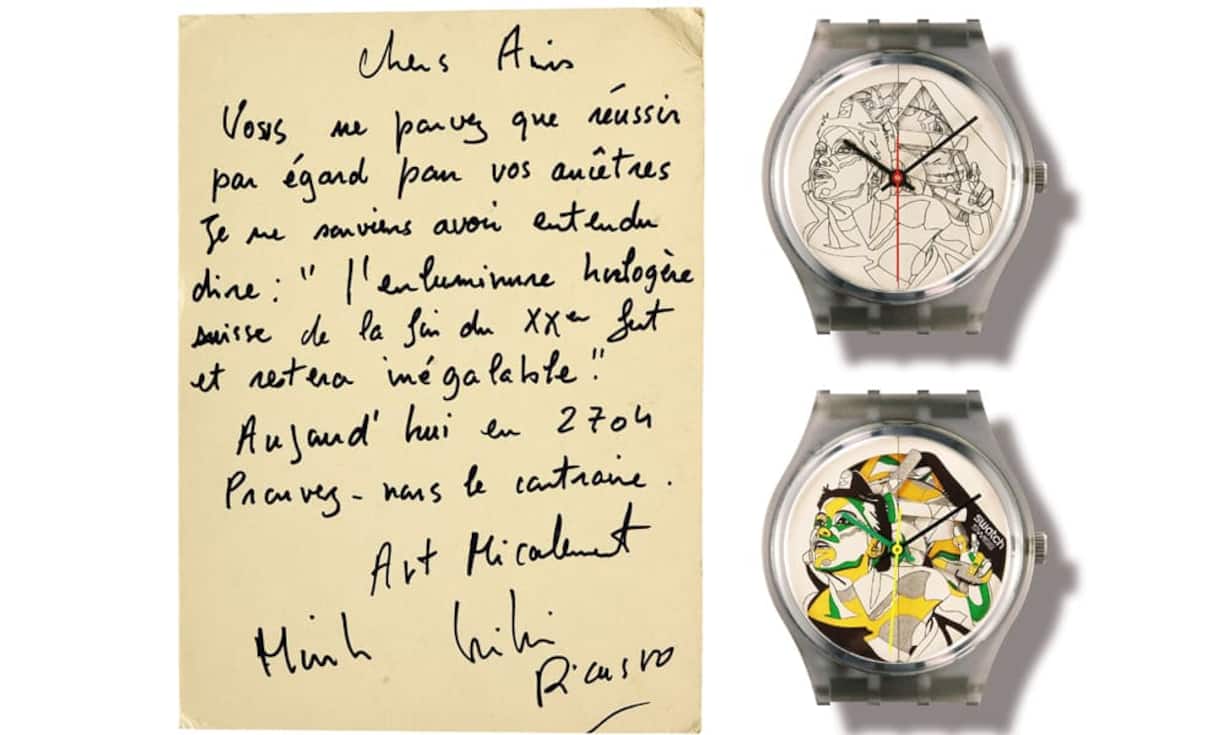 Chers Amis
Vous ne pouvez que réussir
par égard pour vos ancêtres
Je me souviens avoir entendu
dire : " l'enluminure horlogère
suisse de la fin du XXème fut
et restera inégalable "
Aujourd'hui en 2704
Prouvez-nous le contraire.
Art Micalement
Kiki
Picasso
swatch
SWISS